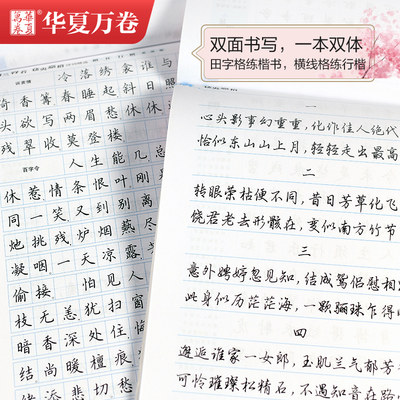 华夏万卷
双面书写，一本双体
田字格练楷书，横线格练行楷
诉衷情
冷落绣衾谁与
香篝春睡起斜日照
头欲写两眉愁休休
残翠收莫登楼
百字令
人生能几总
休惹情条恨叶刚
同一笑又到别离
灺挑残炉烟爇尽
凝咽一天凉露
偷接怕见人
枝无恙犹扫窗
暗香深处住悔
结尚暖檀痕
绪添悲切愁
一
心头影事幻重重，化作佳人绝代
恰似东山山上月，轻轻走出最高
二
转眼荣枯便不同，昔日芳草化飞
饶君老去形骸在，变似南方竹节
三
意外娉婷忽见知，结成鸳侣慰相
此身似历茫茫海，一颗骊珠乍得
四
邂逅谁家一女郎，玉肌兰气郁芳
可怜璀璨松精石，不遇知音在路